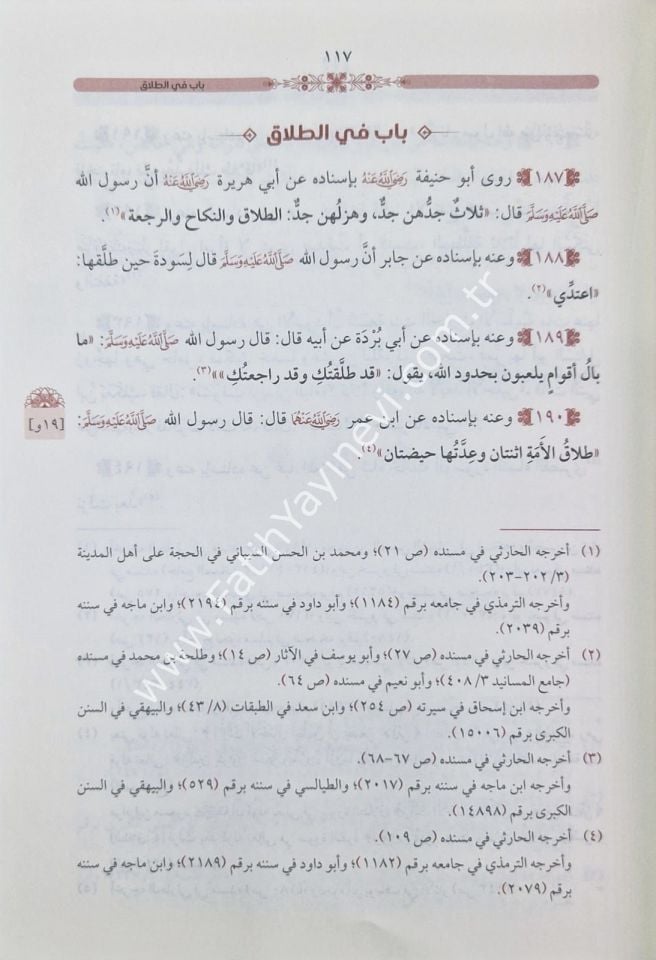 ١١٧
باب في الطلاق
باب في الطلاق
﴿١٨٧﴾ روى أبو حنيفة رَضِيَ اللَّهُ عَنْهُ بإسناده عن أبي هريرة رَضِيَ اللَّهُ عَنْهُ أنَّ رسول الله
صَلَّى اللَّهُ عَلَيْهِ وَسَلَّمَ قال: «ثلاثٌ جدُّهن جدٌّ، وهزلُهن جدٌّ: الطلاق والنكاح والرجعة»(١).
﴿١٨٨﴾ وعنه بإسناده عن جابر أنَّ رسول الله صَلَّى اللَّهُ عَلَيْهِ وَسَلَّمَ قال لِسَودة حين طلَّقها:
«اعتدِّي»(٢).
﴿١٨٩﴾ وعنه بإسناده عن أبي بُرْدَة عن أبيه قال: قال رسول الله صَلَّى اللَّهُ عَلَيْهِ وَسَلَّمَ: «ما
بالُ أقوامٍ يلعبون بحدود الله، يقول: «قد طلَّقتُكِ وقد راجعتُكِ»»(٣).
﴿١٩٠﴾ وعنه بإسناده عن ابن عمر رَضِيَ اللَّهُ عَنْهُمَا قال: قال رسول الله صَلَّى اللَّهُ عَلَيْهِ وَسَلَّمَ:
[١٩و]
«طلاقُ الأَمَةِ اثنتان وعِدَّتُها حيضتان»(٤).
(١) أخرجه الحارثي في مسنده (ص ٢١)؛ ومحمد بن الحسن الشيباني في الحجة على أهل المدينة
(٣/ ٢٠٢-٢٠٣).
وأخرجه الترمذي في جامعه برقم (١١٨٤)؛ وأبو داود في سننه برقم (٢١٩٤)؛ وابن ماجه في سننه
برقم (٢٠٣٩).
(٢) أخرجه الحارثي في مسنده (ص ٢٧)؛ وأبو يوسف في الآثار (ص ١٤)؛ وطلحة بن محمد في مسنده
(جامع المسانيد ٣/ ٤٠٨)؛ وأبو نعيم في مسنده (ص ٦٤).
وأخرجه ابن إسحاق في سيرته (ص ٢٥٤)؛ وابن سعد في الطبقات (٨/ ٤٣)؛ والبيهقي في السنن
الكبرى برقم (١٥٠٠٦).
(٣) أخرجه الحارثي في مسنده (ص ٦٧-٦٨).
وأخرجه ابن ماجه في سننه برقم (٢٠١٧)؛ والطيالسي في سننه برقم (٥٢٩)؛ والبيهقي في السنن
الكبرى برقم (١٤٨٩٨).
(٤) أخرجه الحارثي في مسنده (ص ١٠٩).
وأخرجه الترمذي في جامعه برقم (١١٨٢)؛ وأبو داود في سننه برقم (٢١٨٩)؛ وابن ماجه في سننه
برقم (٢٠٧٩).
www.FatihYayinevi.com.tr